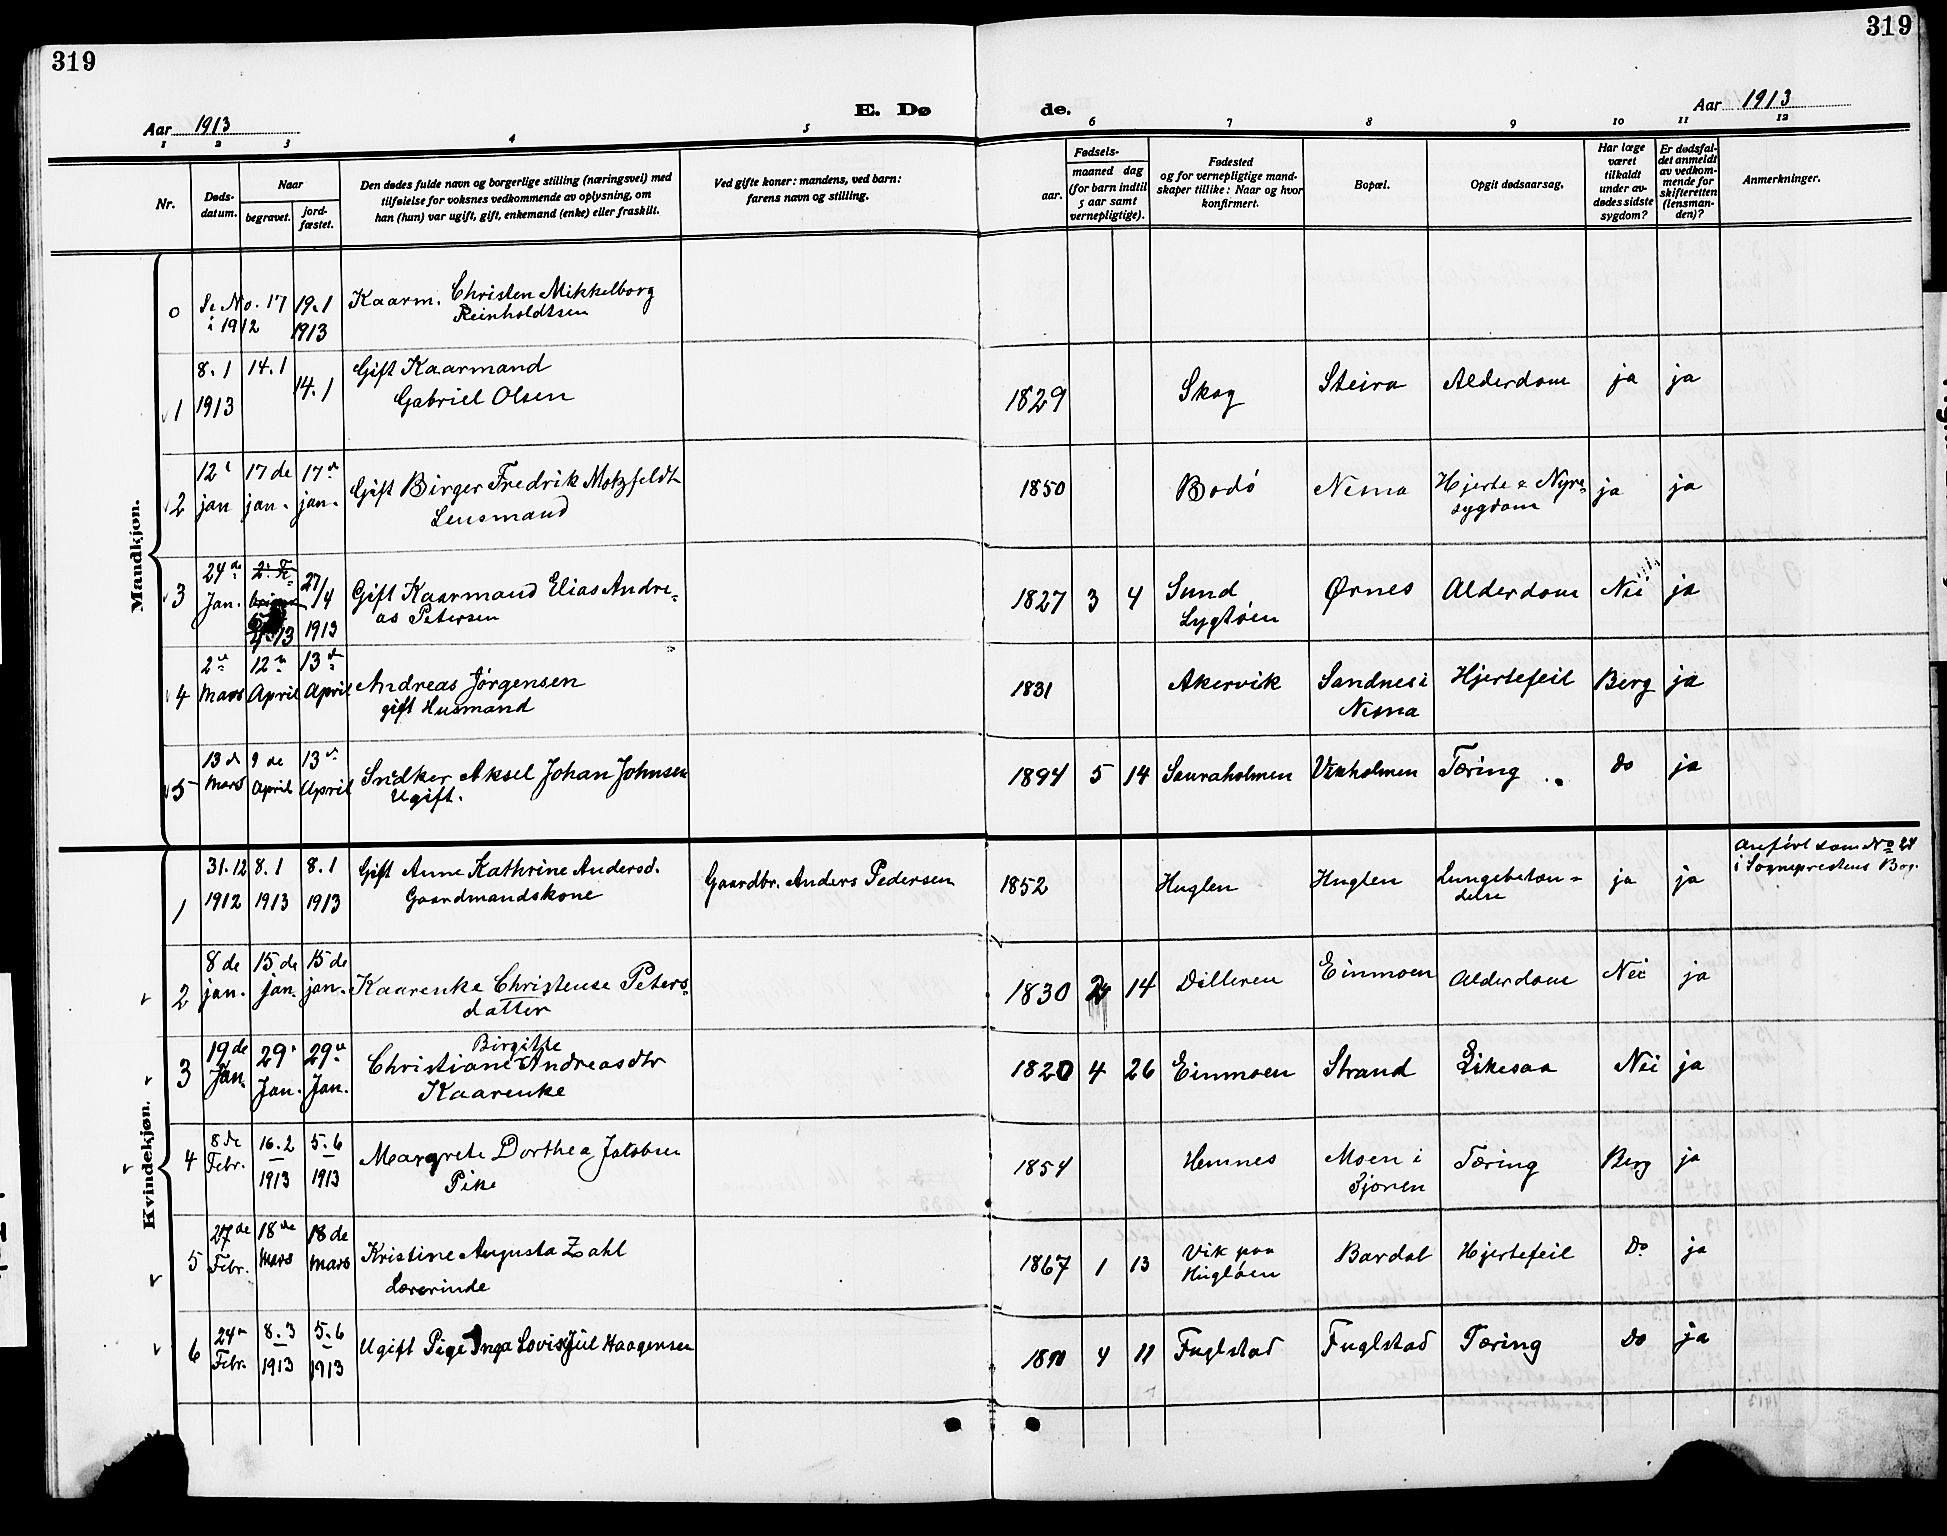 319
319
Aar 1913
E. Dø de.
Aar 1913
1 2 3 4 5 6 7 8 9 10 11 12
Nr.
Døds-
datum.
Naar
begravet.
jord-
fæstet.
Den dødes fulde navn og borgerlige stilling (næringsvei) med
tilføielse for voksnes vedkommende av oplysning, om
han (hun) var ugift, gift, enkemand (enke) eller fraskilt.
Ved gifte koner: mandens, ved barn:
farens navn og stilling.
Fødsels-
aar.
maaned dag
(for barn indtil
5 aar samt
vernepligtige).
Fødested
og for vernepligtige mand-
skaper tillike: Naar og hvor
konfirmert.
Bopæl.
Opgit dødsaarsag.
Har læge
været
tilkaldt
under av-
dødes sidste
sygdom?
Er dødsfal-
det anmeldt
av vedkom-
mende for
skifteretten
(lensman-
den)?
Anmerkninger.
Mandkjøn.
0 Se No. 17 19.1 Kaarm. Christen Mikkelborg
i 1912 1913 Reinholdtsen
8.1 14.1 14.1 Gift Kaarmand
1 1913 Gabriel Olsen 1829 Skog Steira Alderdom ja ja
12 17 de 17 d
2 jan jan. jan. Gift Birger Fredrik Motzfeldt 1850 Bodö Nesna Hjerte & Nyre- ja ja
Lensmand sygdom
24 de 27/4
3 Jan. 13 1913 Gift Kaarmand Elias Andre- 1827 3 4 Sund Ørnes Alderdom Nei ja
as Petersen
12 13
4 Mars April April Andreas Jørgensen 1831 Akervik Sandnes i Hjertefeil Berg ja
gift Husmand Nesna
13 d 9 de 13
5 Mars April April Snedker Aksel Johan Johnsen 1894 5 14 Sauraholmen Vikholmen Tæring Do ja
Ugift.
Kvindekjøn.
31.12 8.1 8.1 Gift Anne Kathrine Andersd. Gaardbr. Anders Pedersen 1852 Huglen Huglen Lungebetæn- ja ja Anført som No 24
1 1912 1913 1913 Gaardmandskone delse i Sogneprestens Bog.
8 de 15 de 15 de
2 jan. jan. jan. Kaarenke Christense Peters- 1830 2 14 Dilleren Einmoen Alderdom Nei ja
datter
19 de 29 29 Birgitte
3 Jan. Jan. Jan. Christiane Andreasdtr 1820 4 26 Einmoen Strand Likesaa Nei ja
Kaarenke
8 de 16.2 5.6
4 Febr. 1913 1913 Margrete Dorthea Jakobsen 1854 Hemnes Moen i Tæring Berg ja
Pike Sjonen
27 de 18 de 18 de
5 Febr. Mars Mars Kristine Augusta Zahl 1867 1 13 Vik paa Bardal Hjertefeil Do ja
Lærerinde Huglöen
24 8.3 5.6
6 Febr. 1913 1913 Ugift Pige Inga Jul Haagensen 4 11 Fuglstad Fuglstad Tæring Do ja